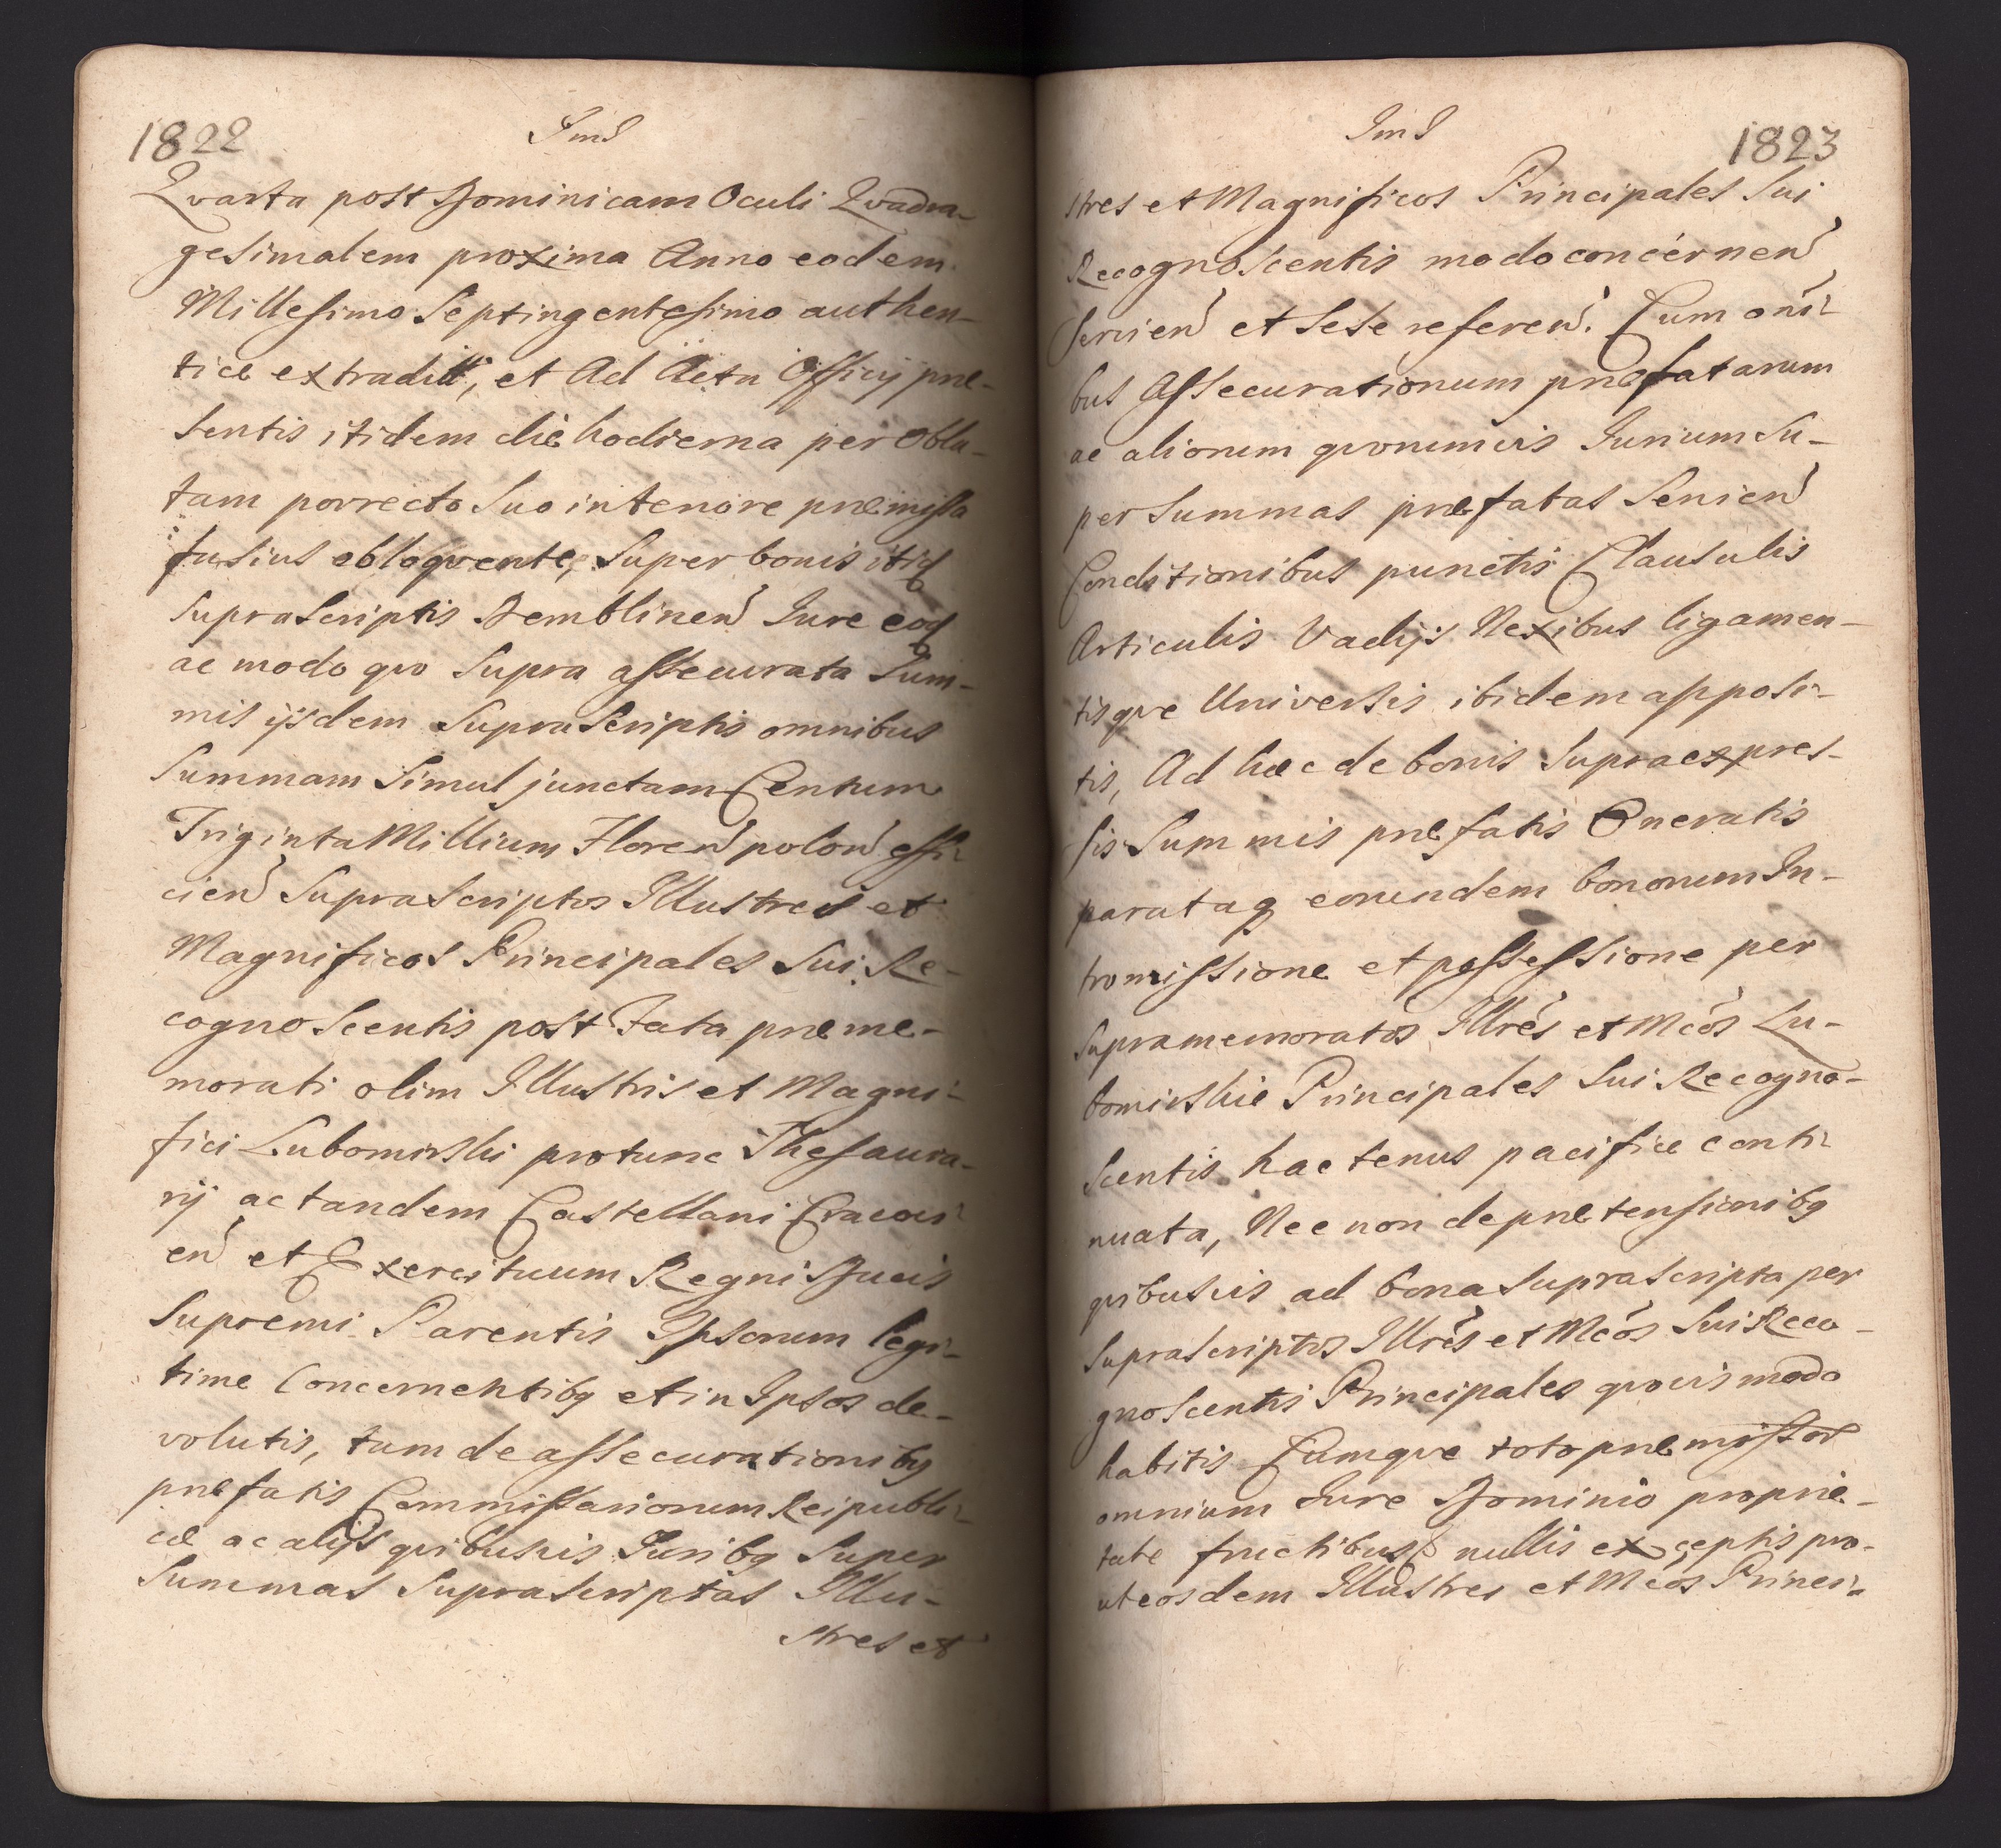 1822
Imd
Qvarta post Dominicam Oculi Qvadra-
gesimalem proxima Anno eodem
Millesimo Septingentesimo authen-
tice extradit, et Ad Acta Officij præ-
sentis itidem die hodierna per obla-
tam porrecto Suo in tenore præmissa
fusius obloqvente, Super bonis itid
supra Scriptis Demblinen Iure eod
ac modo qvo Supra assecurata Sum-
mis ijsdem Supra Scriptis omnibus
Summam Simul junctam Centum
Triginta Millium Floren polon effi-
cien Supra Scriptos Illustres et
Magnificos Principales Sui Re-
cognoscentis post Fata præme-
morati olim Illustris et Magni-
fici Lubomirski protunc Thesaura-
rij ac tandem Castellani Cracovi-
en et Exercituum Regni Ducis
Supremi Parentis Ipsorum legi-
time Concernentibq et in Ipsos de-
volutis, tam de assecurationibq
præfatis Commissariorum Reipubli-
cæ ac alijs qvibusvis Juribq Super
Summas Supra Scriptas Illu-
stres et
Imd
1823
stres et Magnificos Principales Sui
Recognoscentis modo concernen
servien et Sese referen. Cum oni-
bus Assecurationum præfatarum
ac aliorum qvorumvis Iurium Su-
per Summas præfatas Servien
Conditionibus punctis Clausulis
Articulis Vadijs Nexibus ligamen-
tisqve Universis ibidem apposi-
tis, Ad hæc de bonis Supra expres-
sis Summis præfatis Oneratis
parataq eorundem bonorum In-
tromissione et possessione per
supramemoratos Illres et Mcos Lu-
bomirskie Principales Sui Recogno-
scentis hactenus pacifice conti-
nuata, Nec non de prætensionibq
qvibusvis ad bona Supra Scripta per
Supra Scriptos Illres et Mcos Sui Reco-
gnoscentis Principales qvovis modo
habitis Cumqve toto præmissor
omnium Iure Dominio proprie-
tate fructibus nullis exceptis pro-
ut eosdem Illustres et Mcos Princi-